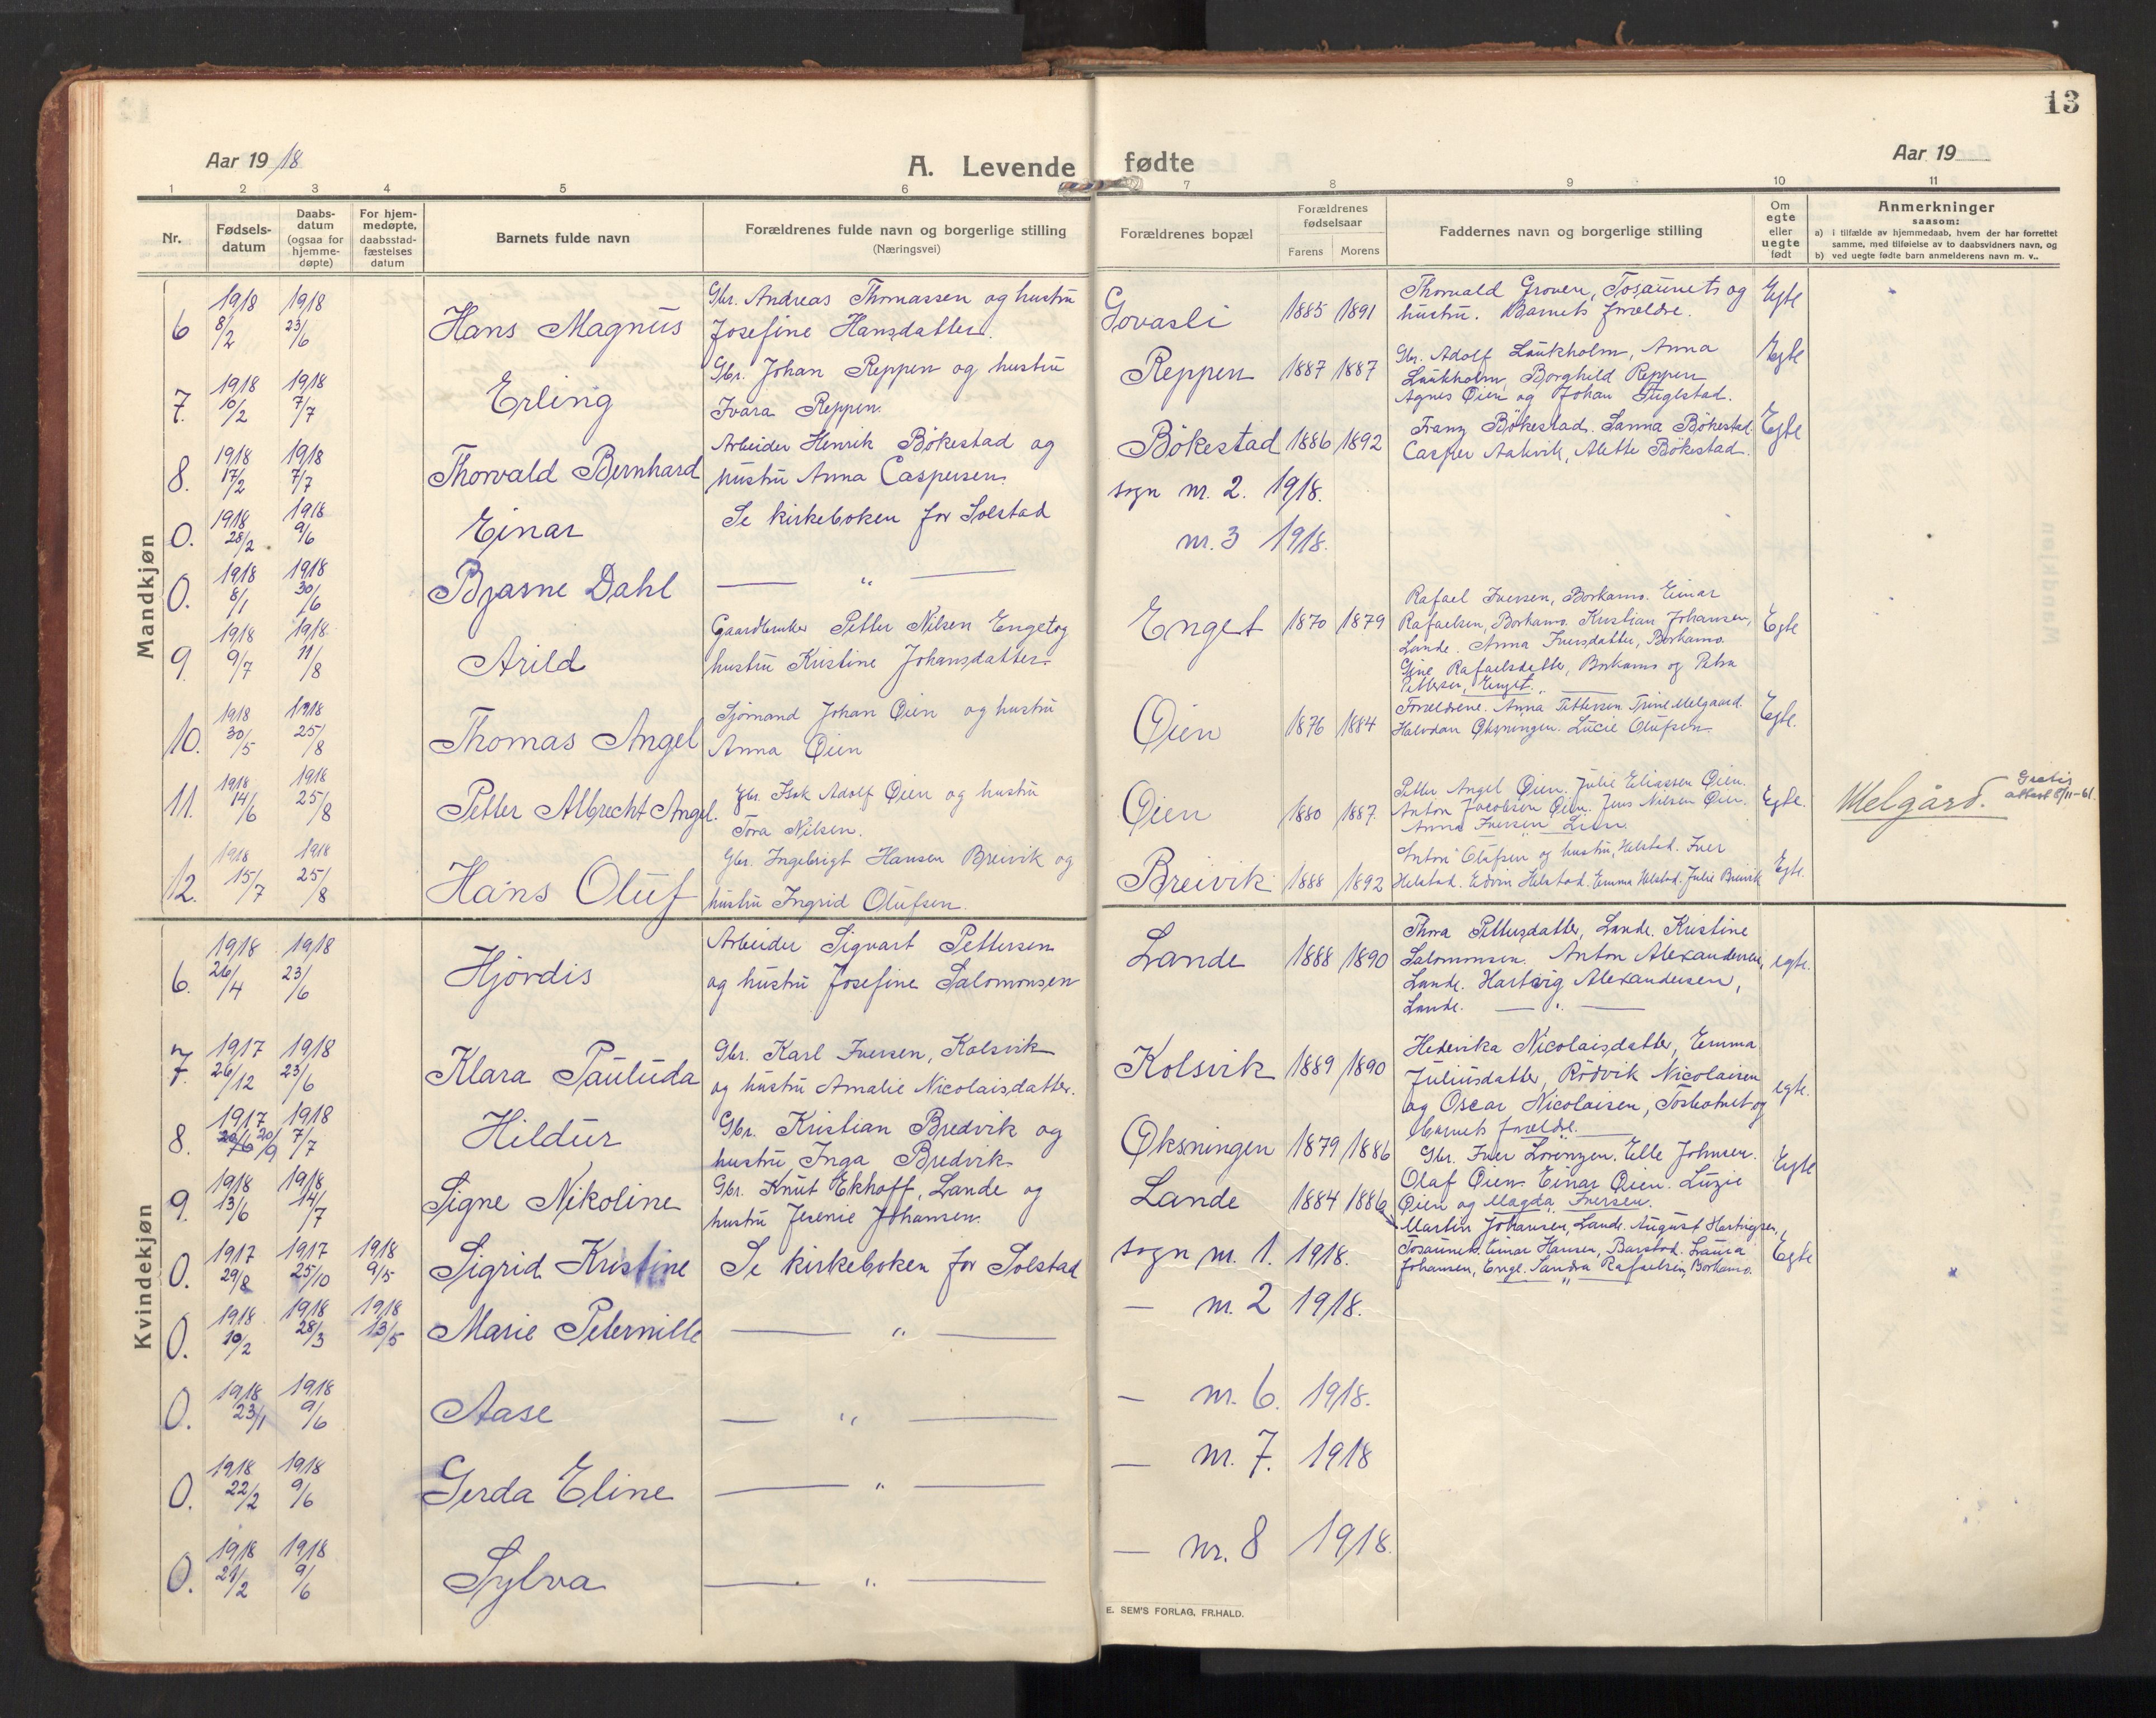 13
Aar 1918
A. Levende fødte
Aar 19
1 2 3 4 5 6 7 8 9 10 11
Nr.
Fødsels-
datum
Daabs-
datum
(ogsaa for
hjemme-
døpte)
For hjem-
medøpte,
daabsstad-
fæstelses
datum
Barnets fulde navn
Forældrenes fulde navn og borgerlige stilling
(Næringsvei)
Forældrenes bopæl
Forældrenes
fødselsaar
Farens Morens
Faddernes navn og borgerlige stilling
Om
egte
eller
uegte
født
Anmerkninger
saasom:
a) i tilfælde av hjemmedaab, hvem der har forrettet
samme, med tilføielse av to daabsvidners navn, og
b) ved uegte fødte barn anmelderens navn m. v..
Mandkjøn
6 1918 8/2 1918 23/6 Hans Magnus
Gbr. Andreas Thomassen og hustru
Josefine Hansdatter.
Govasli 1885 1891
Thorvald Groven, Tosaunet og
hustru. Barnets forældre.
Egte
7. 1918 10/2 1918 7/7 Erling
Gbr. Johan Reppen og hustru
Ivara Reppen.
Reppen 1887 1887
Gbr. Adolf Laukholm, Anna
Laukholm, Borghild Reppen
Agnes Øien og Johan Fuglstad.
Egte
8. 1918 17/2 1918 7/7 Thorvald Bernhard
Arbeider Henrik Bökestad og
hustru Anna Caspersen.
Bökestad 1886 1892
Franz Bökestad. Sanna Bökestad.
Casper Aakvik, Alette Bökestad.
Egte
0. 1918 28/2 1918 9/6 Einar
Se kirkeboken for Solstad
sogn nr. 2. 1918.
0. 1918 8/1 1918 30/6 Bjarne Dahl
— " —
nr. 3 1918.
9. 1918 9/7 1918 11/8 Arild
Gaardbruker Petter Nilsen Enget og
hustru Kristine Johansdatter.
Enget 1870 1879
Rafael Iversen, Borkamo. Einar
Rafaelsen, Borkamo. Kristian Johansen,
Lande. Anna Iversdatter, Borkamo.
Gine Rafaelsdatter, Borkamo og Petra
Pettersen, Enget.
Egte
10. 1918 30/5 1918 25/8 Thomas Angel
Sjömand Johan Øien og hustru
Anna Øien
Øien 1876 1884
Forældrene. Anna Pettersen Trine Melgaard.
Halvdan Øksningen. Lucie Olufsen.
Egte.
11. 1918 14/6 1918 25/8 Petter Albrecht Angel.
Gbr. Isak Adolf Øien og hustru
Tora Nilsen.
Øien 1880 1887.
Petter Angel Øien. Julie Eliassen Øien.
Anton Jacobsen Øien. Jens Nilsen Øien.
Anna Iversen Lien.
Egte.
Melgård. Gratis
attest 8/11-61.
12. 1918 15/7 1918 25/8 Hans Oluf
Gbr. Ingebrigt Hansen Breivik og
hustru Ingrid Olufsen.
Breivik 1888 1892
Anton Olufsen og hustru, Helstad. Iver
Helstad. Edvin Helstad. Emma Helstad. Julie Breivik
Egte.
Kvindekjøn
6. 1918 26/4 1918 23/6 Hjördis
Arbeider Sigvart Pettersen
og hustru Josefine Salomonsen
Lande 1888 1890
Thora Pettersdatter, Lande. Kristine
Salomonsen. Anton Alexandersen,
Lande. Hartvig Alexandersen,
Lande. — " —
egte.
7. 1917 26/12 1918 23/6 Klara Pauluda
Gbr. Karl Iversen, Kolsvik
og hustru Amalie Nicolaisdatter.
Kolsvik 1889 1890
Hedevika Nicolaisdatter, Emma
Juliusdatter, Rödvik Nicolaisen
og Oscar Nicolaisen, Tosbotnet og
barnets forældre.
egte.
8. 1917 20/9 1918 7/7 Hildur
Gbr. Kristian Bredvik og
hustru Inga Bredvik.
Øksningen 1879 1886
Gbr. Iver Lorenzen. Elle Johnsen.
Olaf Øien. Einar Øien. Luzie
Øien og Magda Iversen.
Egte
9. 1918 13/6 1918 14/7 Signe Nikoline
Gbr. Knut Ekhoff, Lande og
hustru Jesenie Johansen.
Lande 1884 1886
Martin Johansen, Lande. August Hartvigsen,
Tosaunet. Einar Hansen, Barstad. Laura
Johansen, Enget. Sandra Rafaelsen, Borkamo.
Egte
0. 1917 29/8 1917 25/10 1918 9/5 Sigrid Kristine
Se kirkeboken for Solstad
sogn nr. 1. 1918.
0. 1918 10/2 1918 28/3 1918 13/5 Marie Peternille
— " —
— nr. 2 1918.
0. 1918 23/1 1918 9/6 Aase
— " —
— nr. 6. 1918.
0. 1918 22/2 1918 9/6 Gerda Eline
— " —
— nr. 7. 1918
0. 1918 21/2 1918 9/6 Sylva
— " —
— nr. 8 1918.
E. SEM'S FORLAG, FR.HALD.